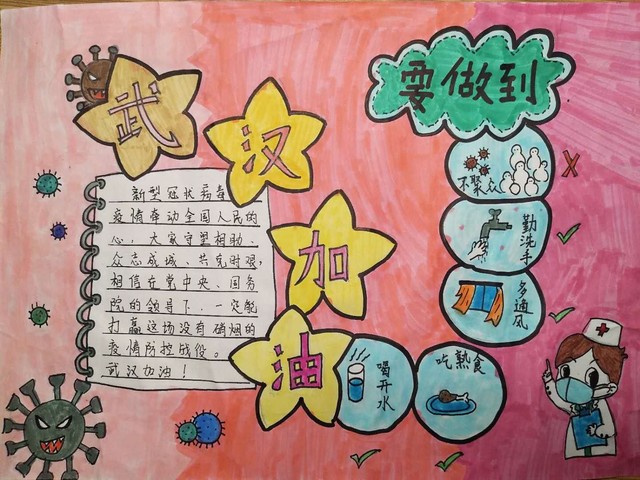 武汉加油
新型冠状病毒
疫情牵动全国人民的
心，大家守望相助、
众志成城、共克时艰，
相信在党中央、国务
院的领导下，一定能
打赢这场没有硝烟的
疫情防控战役。
武汉加油！
要做到
不聚众
勤洗手
多通风
吃熟食
喝开水